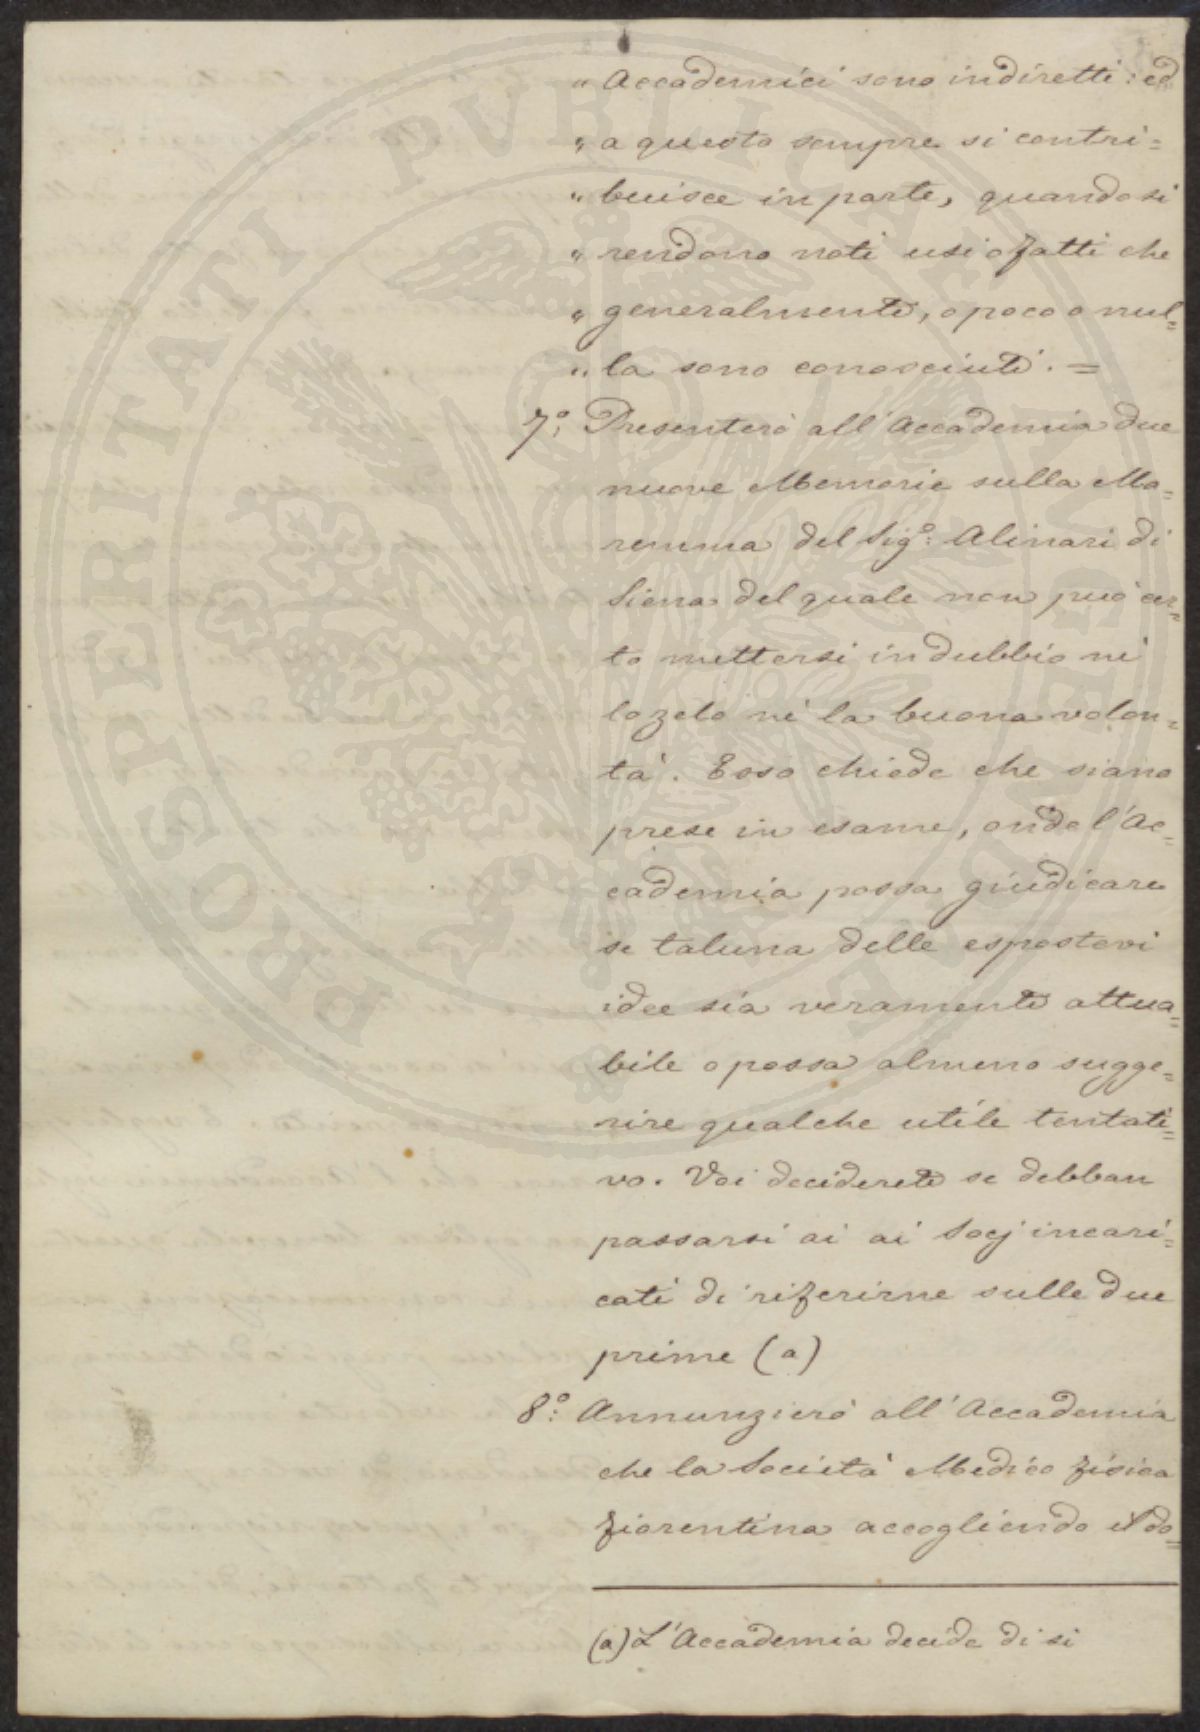 „ Accademici sono indiretti: ed
„ a questo sempre si contri=
„ buisce in parte, quando si
„ rendono noti usi o fatti che
„ generalmente, o poco o nul=
„ la sono conosciuti. =
7.° Presenterò all' Accademia due
nuove Memorie sulla Ma=
remma del Sig.° Alinari di
Siena del quale non può cer=
to mettersi in dubbio nè
lo zelo nè la buona volon=
tà. Esso chiede che siano
prese in esame, onde l'Ac=
cademia possa giudicare
se taluna delle espostevi
idee sia veramente attua=
bile o possa almeno sugge=
rire qualche utile tentati=
vo. Voi deciderete se debban
passarsi ai ai Socj incari=
cati di riferirne sulle due
prime (a)
8.° Annunzierò all' Accademia
che la Società Medico fisica
fiorentina accogliendo il do=
(a) L'Accademia decide di si
PROSPERITATI PUBLICAE AUGENDAE